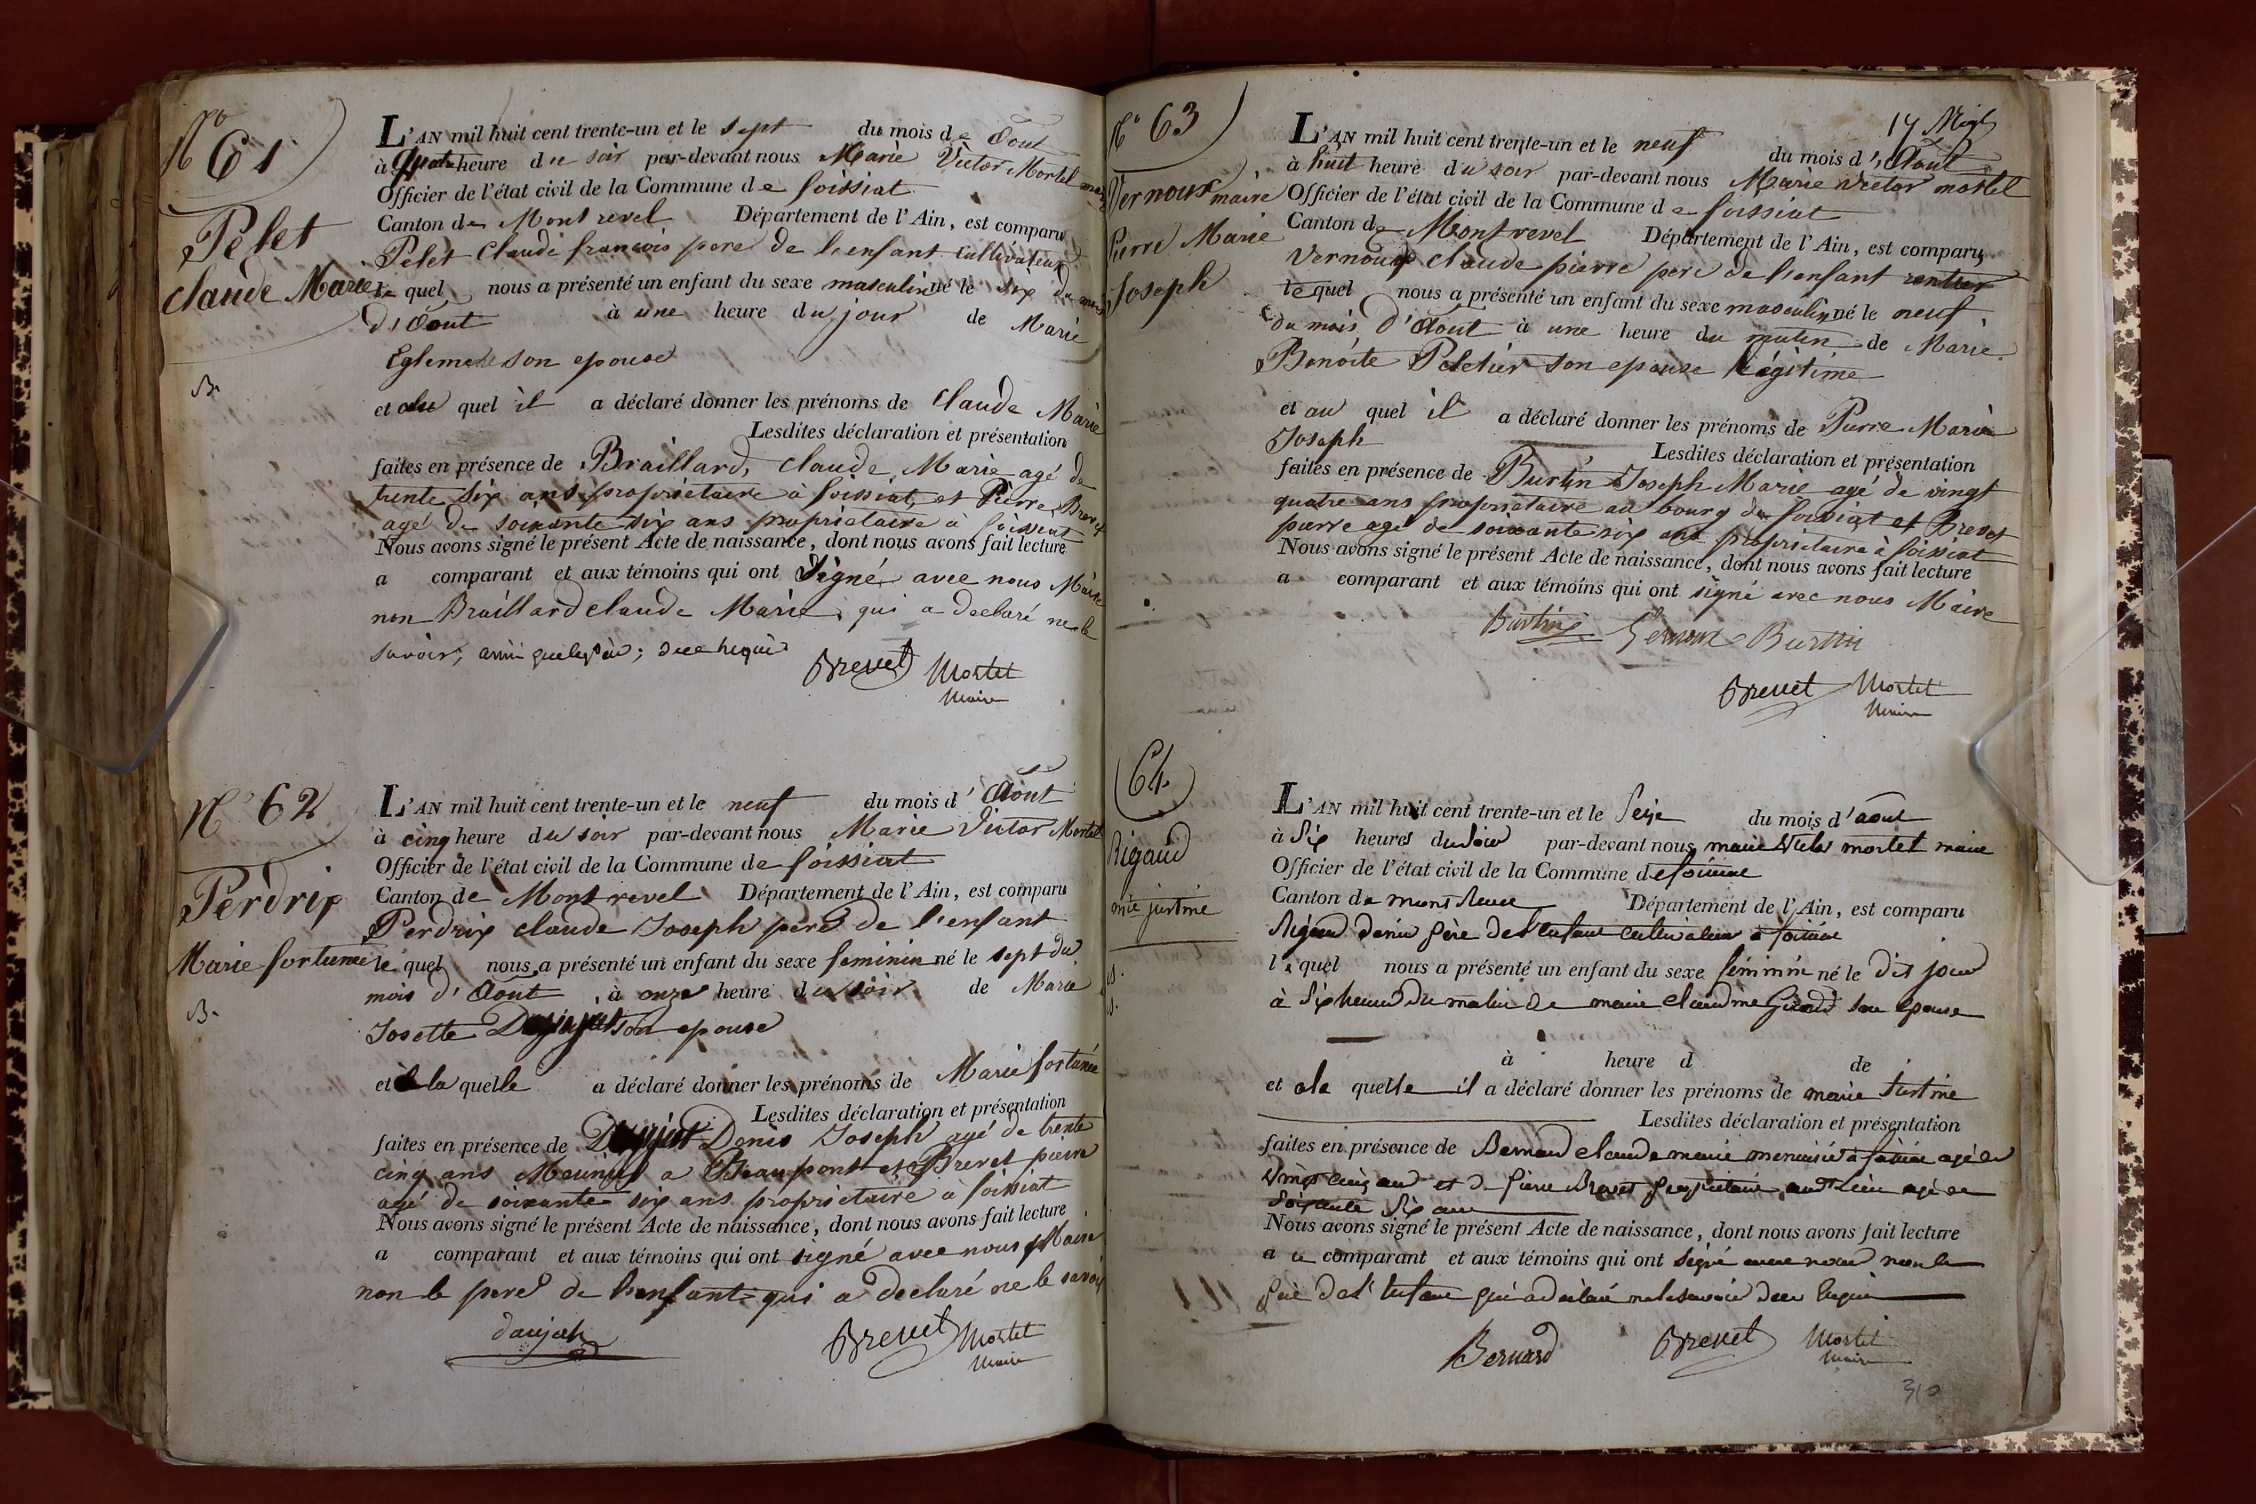 No 61
Pelet
Claude Marie
B.
L'AN mil huit cent trente-un et le sept du mois de Aout
à quatre heure du soir par-devant nous Marie Victor Mortel maire
Officier de l'état civil de la Commune de foissiat
Canton de Montrevel Département de l'Ain, est comparu
Pelet Claude françois pere de l'enfant cultivateur
le quel nous a présenté un enfant du sexe masculin né le six du mois
d'Aout à une heure du jour de Marie
son epouse
et au quel il a déclaré donner les prénoms de Claude Marie
Lesdites déclaration et présentation
faites en présence de Braillard, Claude Marie agé de
trente six ans propriétaire à foissiat, et Pierre Brevet
agé de soixante six ans propriétaire à foissiat
Nous avons signé le présent Acte de naissance, dont nous avons fait lecture
a comparant et aux témoins qui ont Signé avec nous Maire
non Braillard Claude Marie qui a declaré ne le
savoir, ainsi que le père; de ce requis
Brevet Mortel
Maire
No 62
Perdrix
Marie fortunée
B.
L'AN mil huit cent trente-un et le neuf du mois d'Aout
à cinq heure du soir par-devant nous Marie Victor Mortel
Officier de l'état civil de la Commune de foissiat
Canton de Montrevel Département de l'Ain, est comparu
Perdrix claude Joseph père de l'enfant
le quel nous a présenté un enfant du sexe feminin né le sept du
mois d'Aout à onze heure du soir de Marie
Josette son epouse
et a la quelle a déclaré donner les prénoms de Marie fortunée
Lesdites déclaration et présentation
faites en présence de Denis Joseph agé de trente
cinq ans Meunier a Beaupont et Brevet pierre
agé de soixante six ans propriétaire à foissiat
Nous avons signé le présent Acte de naissance, dont nous avons fait lecture
a comparant et aux témoins qui ont signé avec nous Maire
non le pere de l'enfant qui a declaré ne le savoir
daujat Brevet Mortel
Maire
No 63
Vernoux
Pierre Marie
Joseph
L'AN mil huit cent trente-un et le neuf du mois d'Aout
à huit heure du soir par-devant nous Marie Victor mortel
maire Officier de l'état civil de la Commune de foissiat
Canton de Montrevel Département de l'Ain, est comparu
Vernoux claude pierre pere de l'enfant rentier
le quel nous a présenté un enfant du sexe masculin né le neuf
du mois d'Aout à une heure du matin de Marie
Benoite Peletier son epouse légitime
et au quel il a déclaré donner les prénoms de Pierre Marie
Joseph Lesdites déclaration et présentation
faites en présence de Burtin Joseph Marie agé de vingt
quatre ans propriétaire au bourg de foissiat et Brevet
pierre agé de soixante six ans propriétaire à foissiat
Nous avons signé le présent Acte de naissance, dont nous avons fait lecture
a comparant et aux témoins qui ont signé avec nous Maire
Burtin Vernoux Burtin
Brevet Mortel
Maire
64
Rigaud
mie justine
L'AN mil huit cent trente-un et le Seize du mois d'aout
à Six heures du soir par-devant nous marie Victor mortel maire
Officier de l'état civil de la Commune de foissiat
Canton de montrevel Département de l'Ain, est comparu
Rigaud denis père de l'enfant cultivateur à foissiat
le quel nous a présenté un enfant du sexe féminin né le dit jour
à Six heures du matin de marie claudine son epouse
à heure d de
et a la quelle il a déclaré donner les prénoms de marie Justine
Lesdites déclaration et présentation
faites en présence de Bernard claude marie menuisier à foissiat agé de
vingt cinq ans et de pierre Brevet propriétaire audt Lieu agé de
Soixante Six ans
Nous avons signé le présent Acte de naissance, dont nous avons fait lecture
a ce comparant et aux témoins qui ont signé avec nous non le
père de l'enfant qui a déclaré ne le savoir de ce requis
Bernard Brevet Mortel
Maire
310